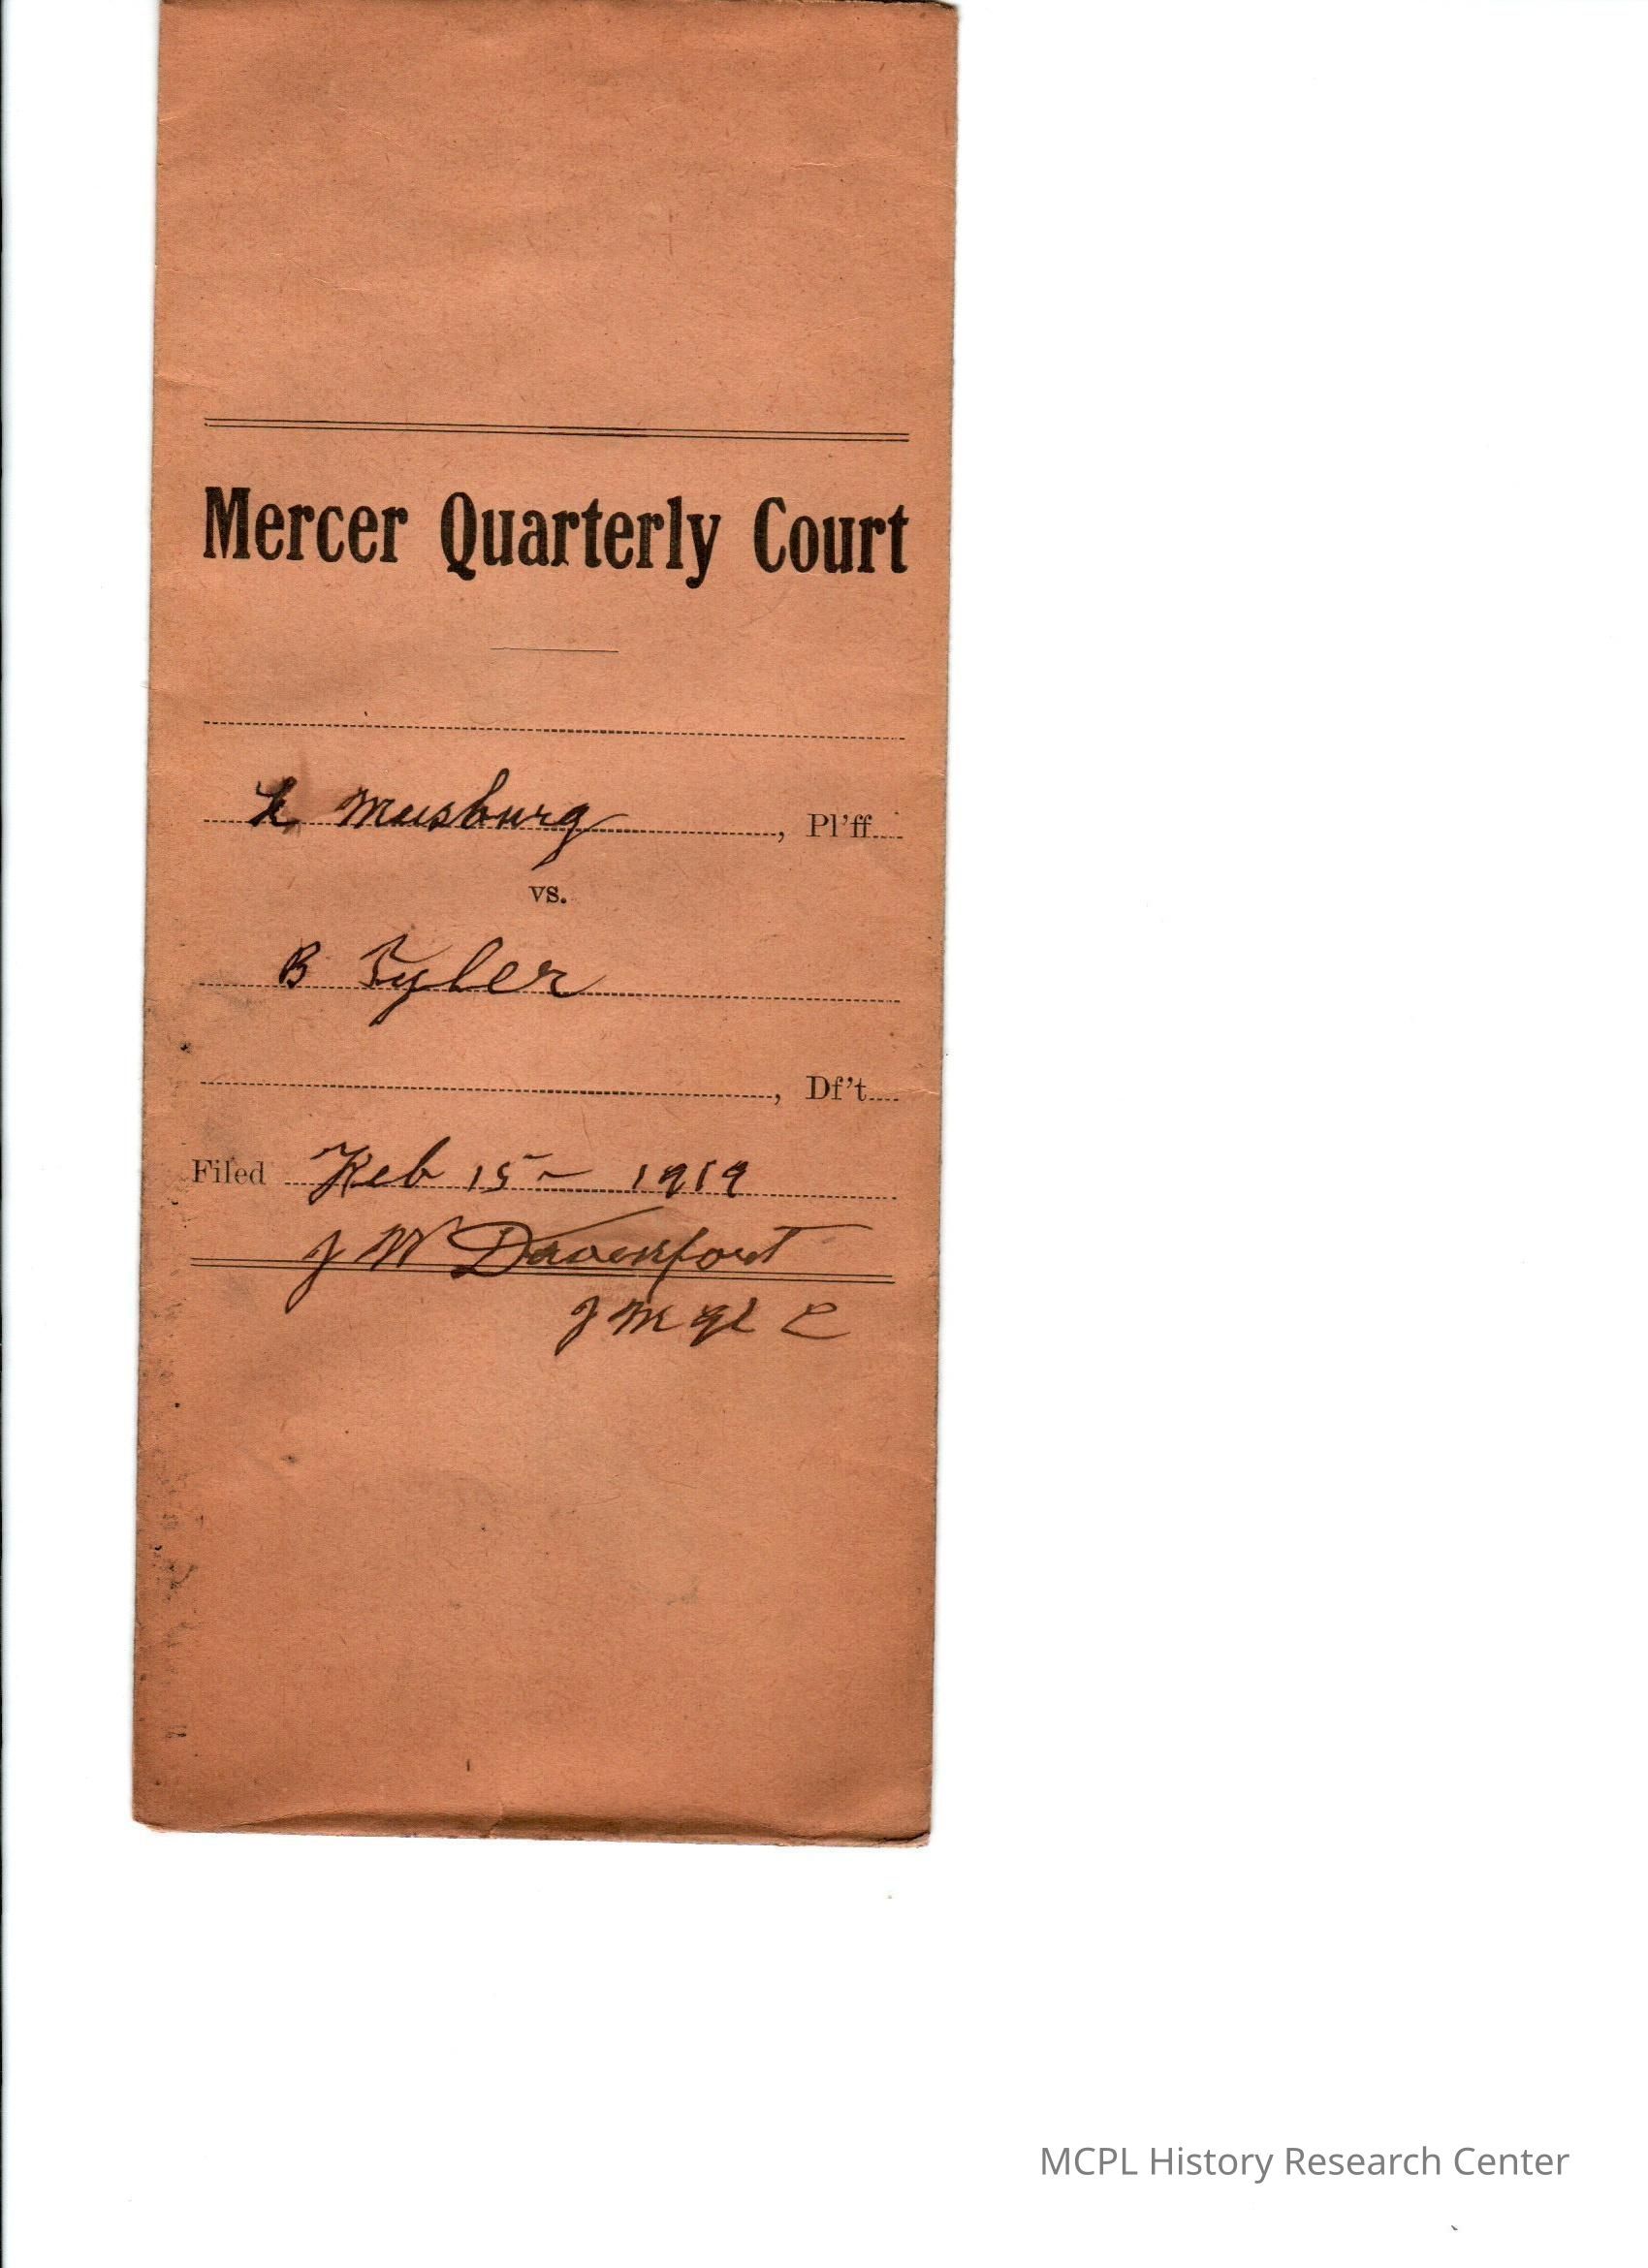 Mercer Quarterly Court
Musburg, Pl'ff
vs.
B Tyler
, Df't
Filed Feb 15 - 1919
J W Davenport
J M Q C
MCPL History Research Center